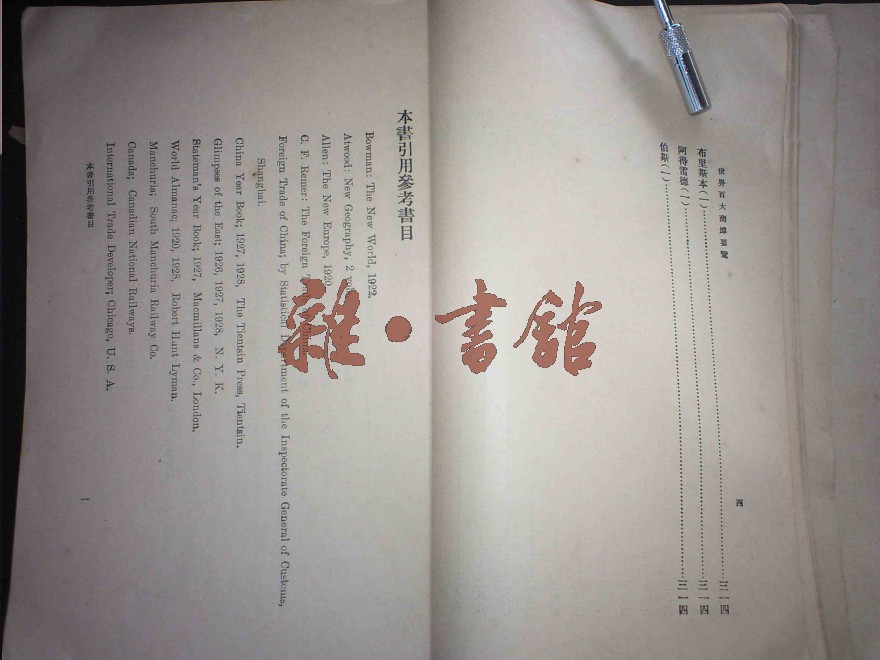 世界百大商埠覽
四
布里斯本(一)……三一四
阿得雷德(一)……三一四
伯斯(一)……三一四
本書引用參考書目
Bowman: The New World, 1922.
Atwood: New Geography, 2
Allen: The New Europe, 1920
C. F. Remer: The Foreign
Foreign Trade of China; by Statistical Department of the Inspectorate General of Customs,
Shanghai.
China Year Book; 1927, 1928, The Tientsin Press, Tientsin.
Glimpses of the East; 1926, 1927, 1928, N. Y. K.
Stateman's Year Book; 1927, Macmillans & Co., London.
World Almanac; 1920, 1928, Robert Hunt Lyman.
Manchuria; South Manchuria Railway Co.
Canada; Canadian National Railways.
International Trade Developer; Chicago, U. S. A.
本書引用參考書目
一
雜·書館